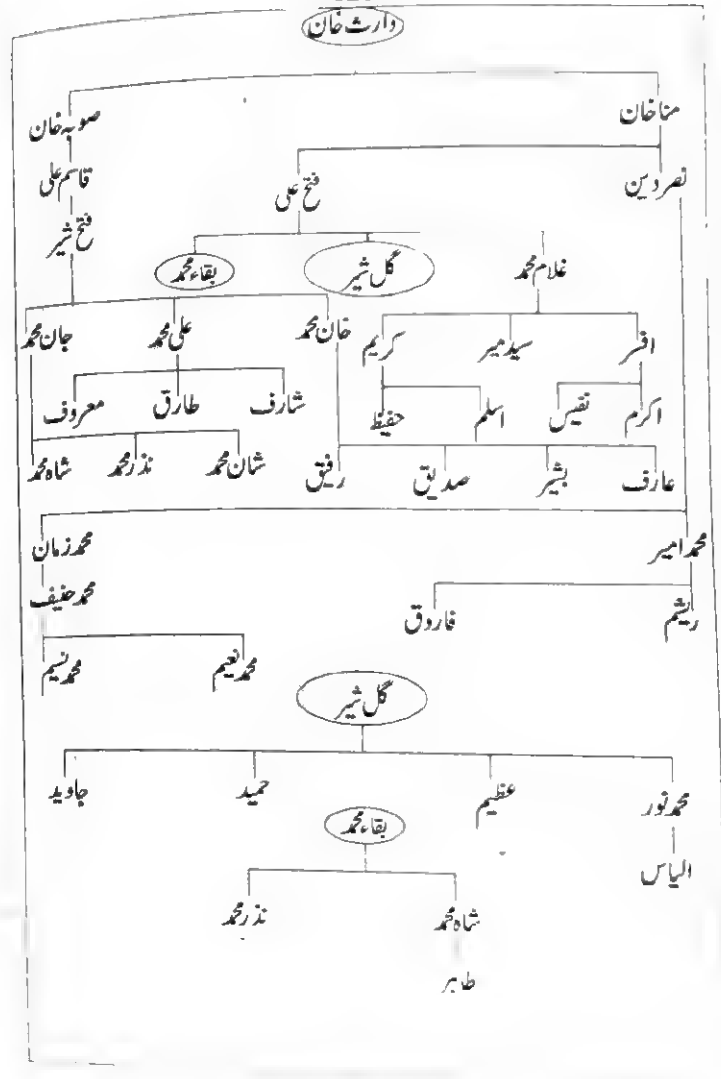 وارث خان
منا خان صوبہ خان
نصر دین فتح علی قاسم علی
فتح شیر
غلام محمد گل شیر بقاء محمد
افسر سید میر کریم خان محمد علی محمد جان محمد
اکرم نفیس اسلم حفیظ شارف طارق معروف
عارف بشیر صدیق رفیق شان محمد نذر محمد شاہ محمد
محمد امیر محمد زمان
محمد حنیف
ریشم فاروق
محمد نعیم محمد نسیم
گل شیر
محمد نور عظیم حمید جاوید
بقاء محمد
الیاس
شاہ محمد نذر محمد
طاہر